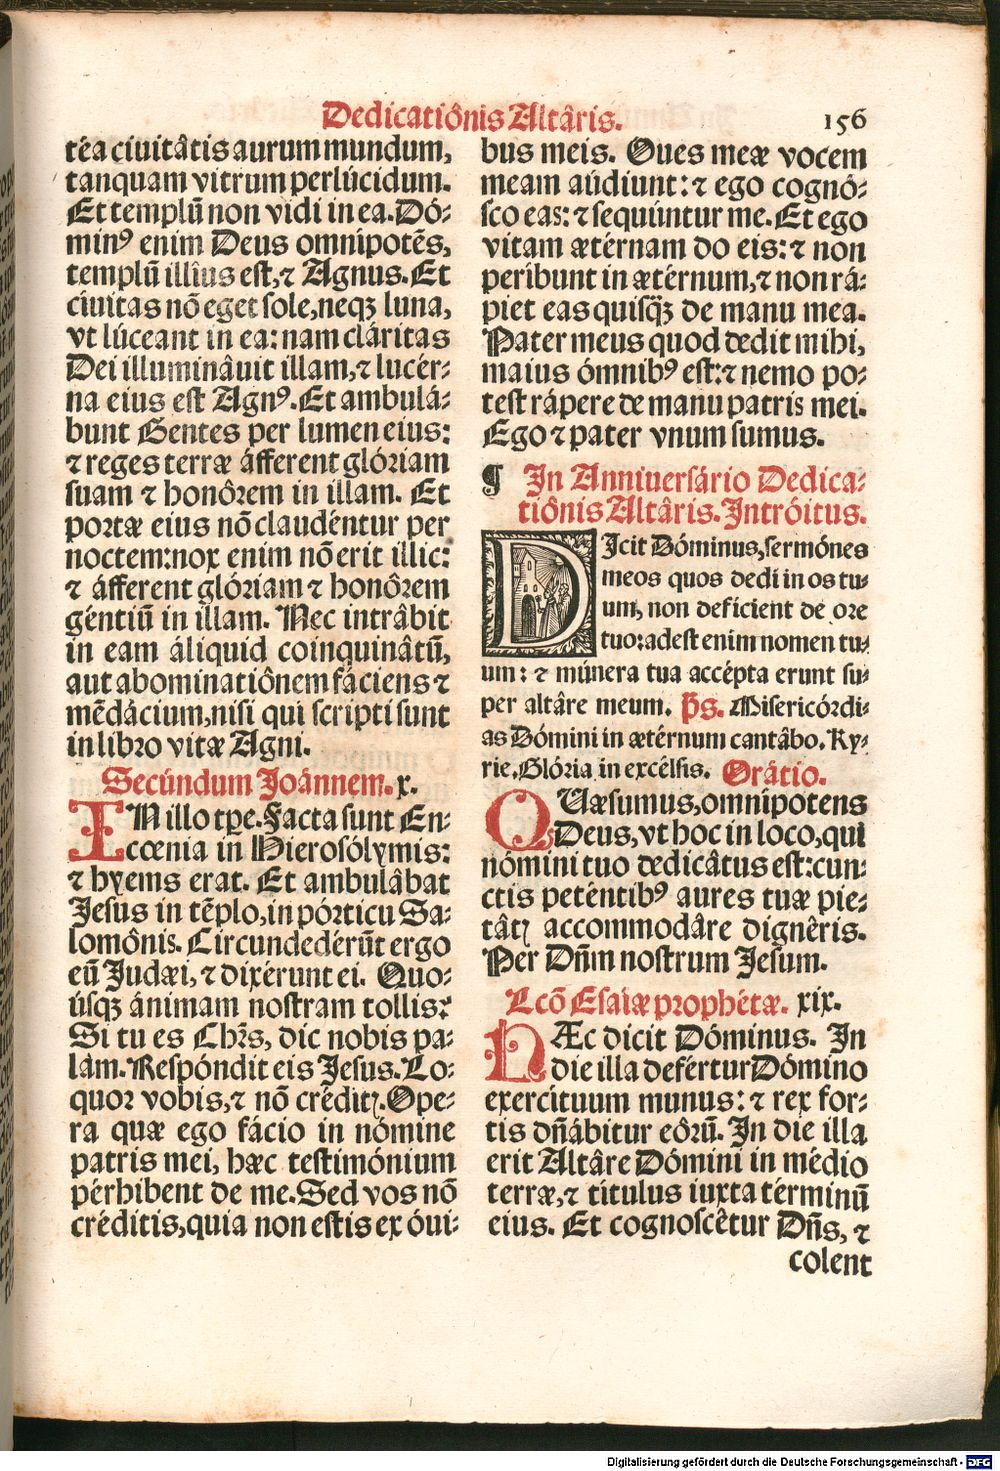 Dedicatiônis Altâris.
156
téa ciuitâtis aurum mundum,
tanquam vitrum perlúcidum.
Et templũ non vidi in ea. Dó⸗
minꝰ enim Deus omnipotẽs,
templũ illîus est, ⁊ Agnus. Et
ciuitas nõ eget sole, neqꝫ luna,
vt lúceant in ea: nam cláritas
Dei illuminâuit illam, ⁊ lucér⸗
na eius est Agnꝰ. Et ambulá⸗
bunt Gentes per lumen eius:
⁊ reges terræ áfferent glóriam
suam ⁊ honôrem in illam. Et
portæ eius nõ claudéntur per
noctem: nox enim nõ erit illic:
⁊ áfferent glóriam ⁊ honôrem
géntiũ in illam. Nec intrâbit
in eam áliquid coinquinâtũ,
aut abominatiônem fáciens ⁊
mẽdácium, nisi qui scripti sunt
in libro vitæ Agni.
Secúndum Joánnem. x.
IN illo tꝑe. Facta sunt En⸗
cœnia in Hierosólymis:
⁊ hyems erat. Et ambulâbat
Jesus in tẽplo, in pórticu Sa⸗
lomônis. Circundedérũt ergo
eũ Judæi, ⁊ dixérunt ei. Quo⸗
úsqꝫ ánimam nostram tollis?
Si tu es Chr̃s, dic nobis pa⸗
làm. Respóndit eis Jesus. Lo⸗
quor vobis, ⁊ nõ créditꝭ. Ope⸗
ra quæ ego fácio in nómine
patris mei, hæc testimónium
pérhibent de me. Sed vos nõ
créditis, quia non estis ex óui⸗
bus meis. Oues meæ vocem
meam aúdiunt: ⁊ ego cognó⸗
sco eas: ⁊ sequúntur me. Et ego
vitam ætérnam do eis: ⁊ non
períbunt in ætérnum, ⁊ non rá⸗
piet eas quisq̃ꝫ de manu mea.
Pater meus quod dedit mihi,
maius ómnibꝰ est: ⁊ nemo po⸗
test rápere de manu patris mei.
Ego ⁊ pater vnum sumus.
¶ In Anniuersário Dedica⸗
tiônis Altâris. Intróitus.
DIcit Dóminus, sermónes
meos quos dedi in os tu⸗
um, non deficient de ore
tuo: adest enim nomen tu⸗
um: ⁊ múnera tua accépta erunt su⸗
per altâre meum. p̃s. Misericórdi⸗
as Dómini in ætérnum cantâbo. Ky⸗
rie. Glória in excélsis. Orâtio.
QVæsumus, omnipotens
Deus, vt hoc in loco, qui
nómini tuo dedicâtus est: cun⸗
ctis peténtibꝰ aures tuæ pie⸗
tâtꝭ accommodâre dignêris.
Per Dñm nostrum Jesum.
Lcõ Esaiæ prophétæ. xix.
HÆc dicit Dóminus. In
die illa defértur Dómino
exercítuum munus: ⁊ rex for⸗
tis dñábitur eôrũ. In die illa
erit Altâre Dómini in médio
terræ, ⁊ títulus iuxta términũ
eius. Et cognoscêtur Dñs, ⁊
colent
Digitalisierung gefördert durch die Deutsche Forschungsgemeinschaft - DFG